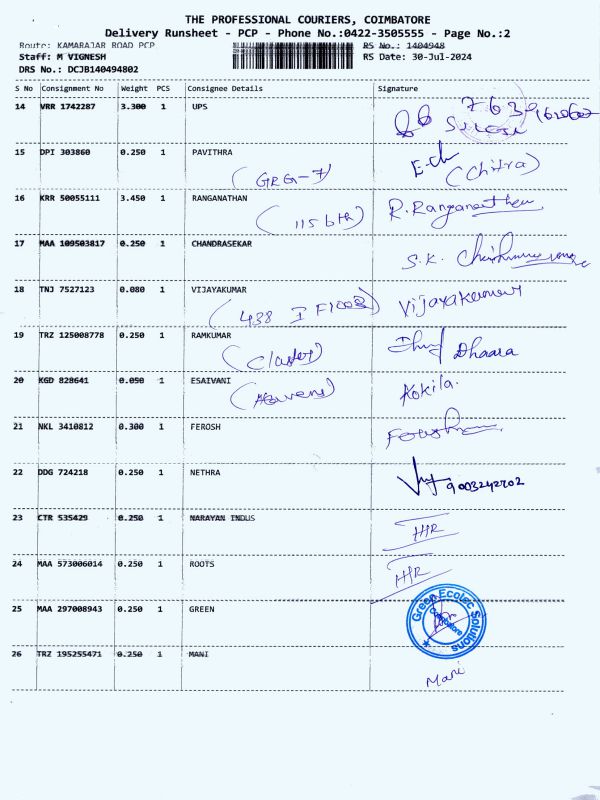 THE PROFESSIONAL COURIERS, COIMBATORE
Delivery Runsheet - PCP - Phone No.:0422-3505555 - Page No.:2
Route: KAMARAJAR ROAD PCP
RS No.: 1404948
Staff: M VIGNESH
RS Date: 30-Jul-2024
DRS No.: DCJB140494802
S No Consignment No Weight PCS Consignee Details Signature
14 VRR 1742287 3.300 1 UPS
15 DPI 303860 0.250 1 PAVITHRA
(GRG-7) (Chitra)
16 KRR 50055111 3.450 1 RANGANATHAN
R.Ranganathan
17 MAA 109503817 0.250 1 CHANDRASEKAR
S.K.
18 TNJ 7527123 0.080 1 VIJAYAKUMAR Vijayakumar
(438 I Floor)
19 TRZ 125008778 0.250 1 RAMKUMAR
(Cluster) Dhaara
20 KGD 828641 0.050 1 ESAIVANI
Kokila.
21 NKL 3410812 0.300 1 FEROSH
22 DDG 724218 0.250 1 NETHRA
9003242702
23 CTR 535429 0.250 1 NARAYAN INDUS
24 MAA 573006014 0.250 1 ROOTS
25 MAA 297008943 0.250 1 GREEN
Green Ecotec Solutions
Coimbatore
26 TRZ 195255471 0.250 1 MANI
Mani